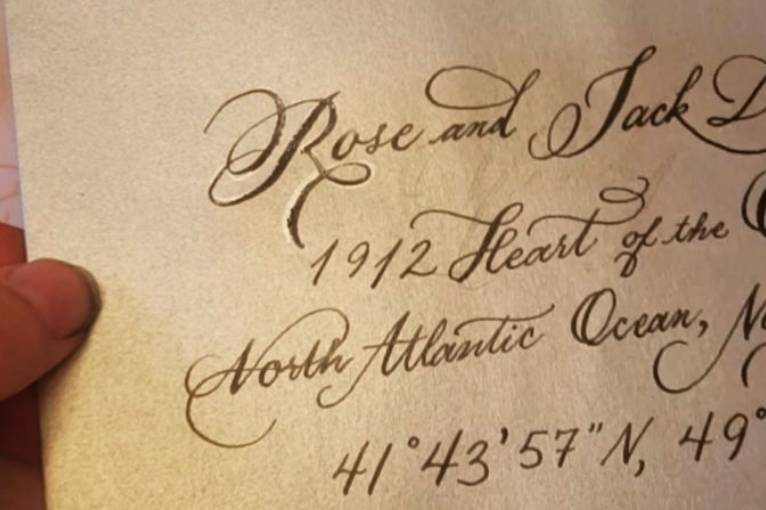 Rose and Jack D
1912 Heart of the O
North Atlantic Ocean, No
41°43'57"N, 49°